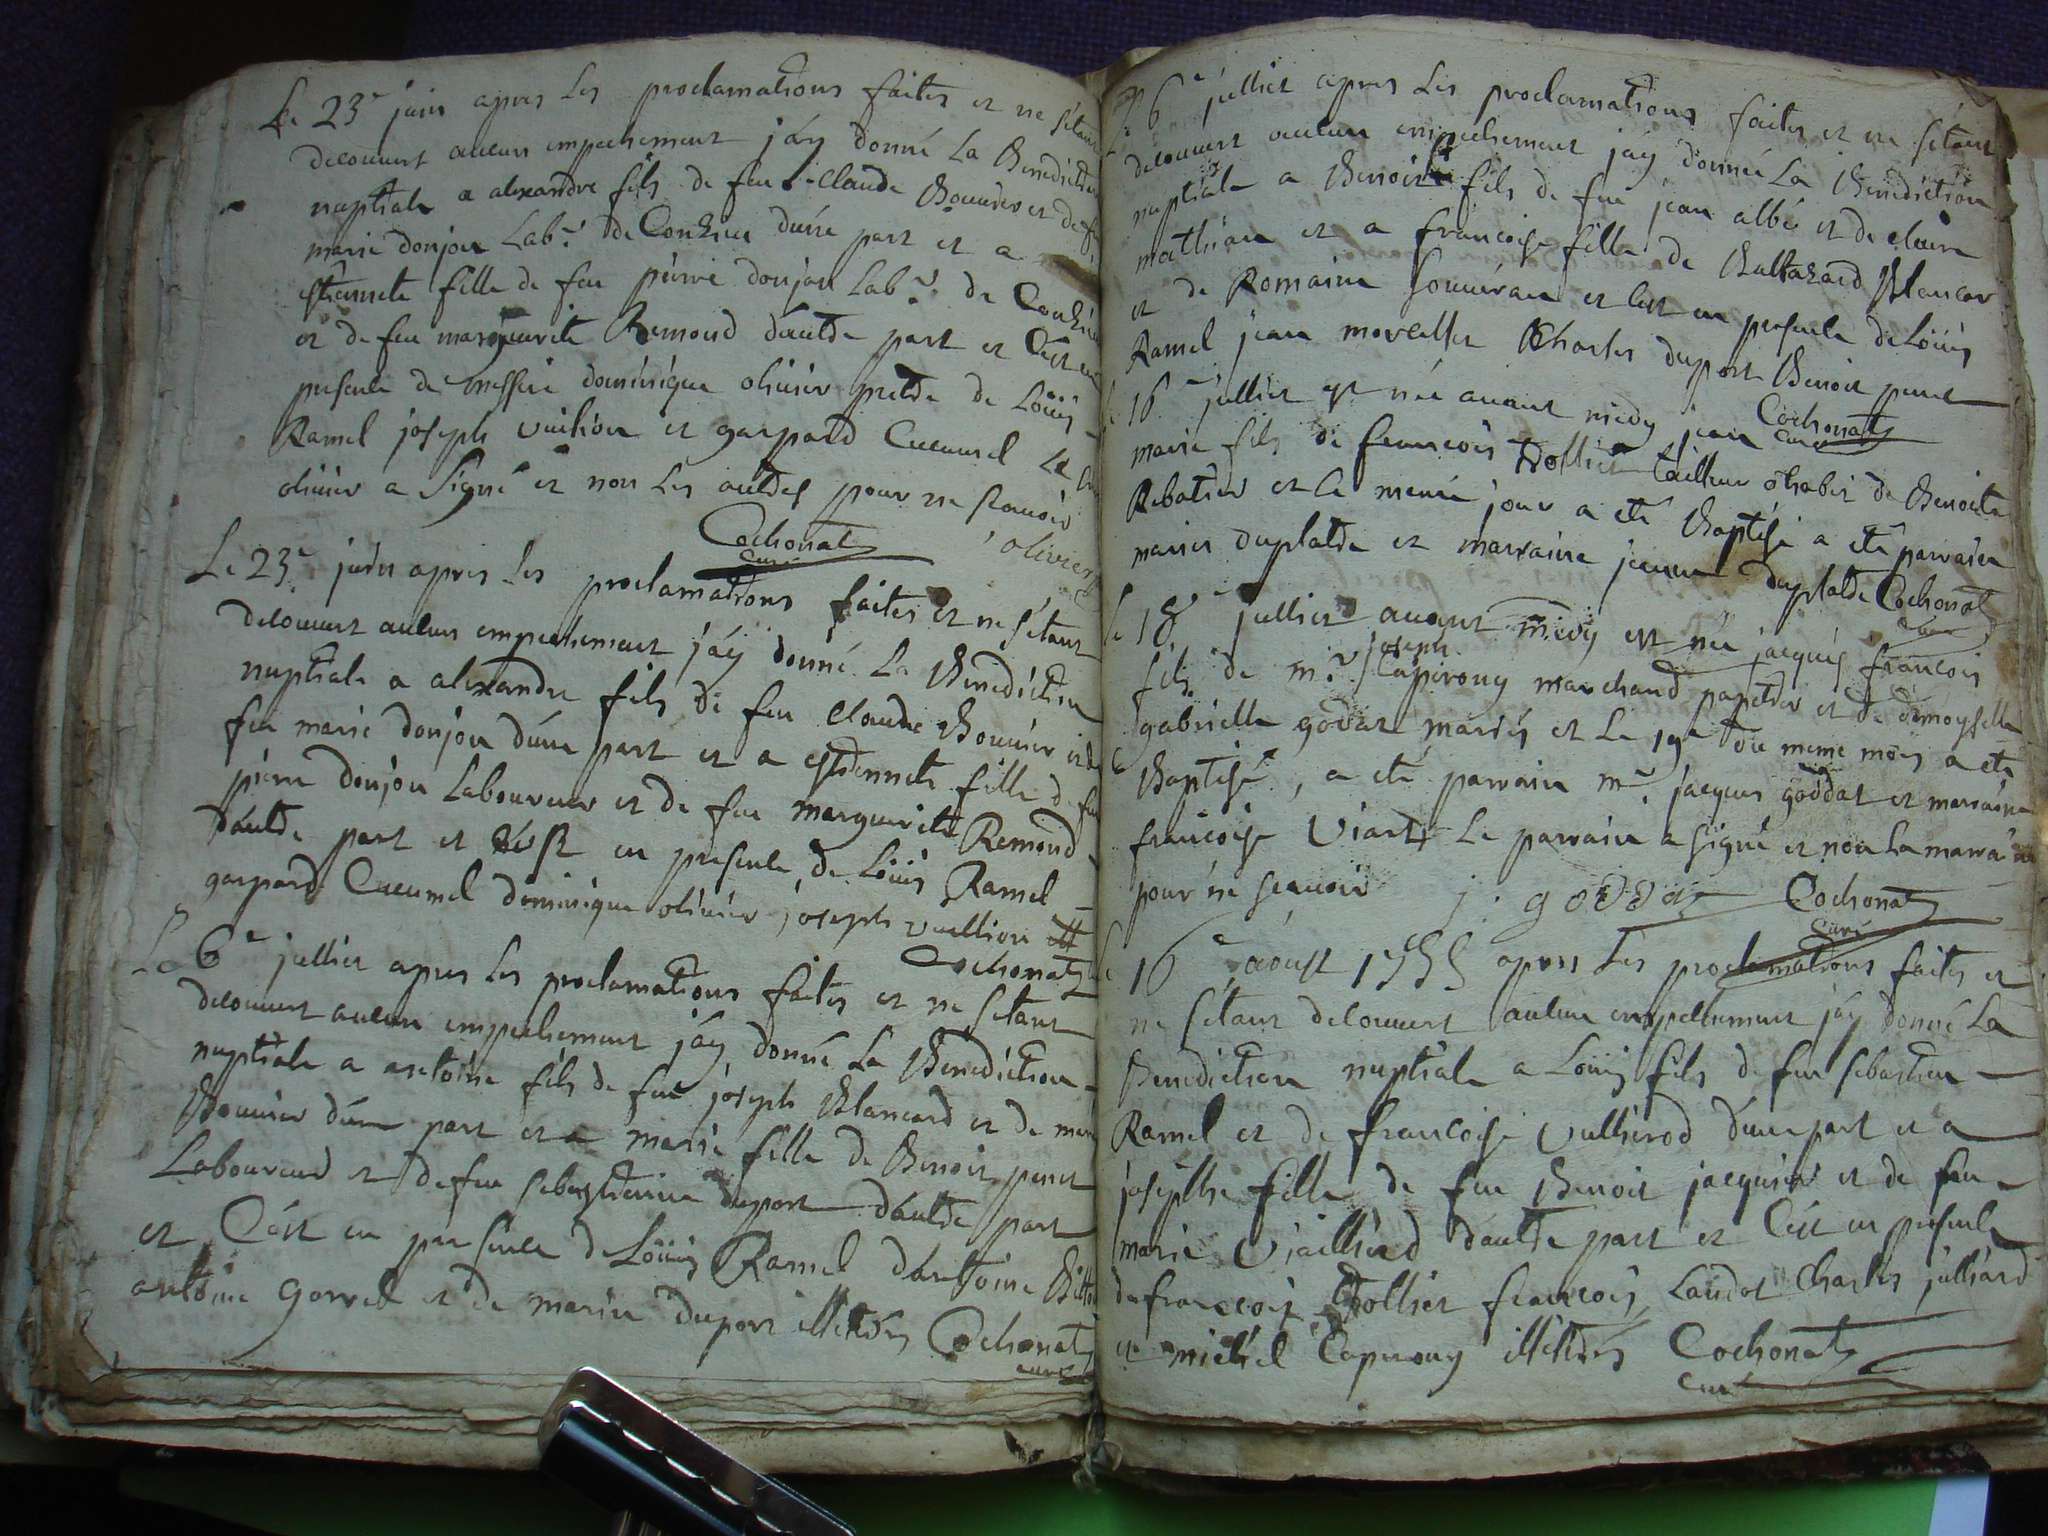 Le 23e juin apres les proclamations faites et ne s'etant
decouvert aucun empechement j'ay donné la Benediction
nuptiale a alexandre fils de feu claude Bouvier et de feu
marie donjon Labr. de Conhieu d'une part et a
estiennete fille de feu pierre donjon Labr. de
et de feu marguerite Remond d'autre part et C'est en
presence de messire dominique olivier pretre de Loüis
Ramel joseph vullion et gaspard Cucumel Le
olivier a signé et non les autres pour ne scavoir
Cochonat olivier
curé
Le 23e juin apres les proclamations faites et ne s'etant
decouvert aucun empechement j'aÿ donné La Benediction
nuptiale a alexandre fils de feu claude Bouvier et de
feu marie donjon d'une part et a estiennete fille de feu
pierre donjon Laboureur et de feu marguerite Remond
d'autre part et c'est en presence de Loüis Ramel
gaspard Cucumel dominique olivier joseph vullion
Cochonat
Le 6e juillet apres les proclamations faites et ne s'etant
decouvert aucun empechement j'aÿ donné La Benediction
nuptiale a antoine fils de feu joseph Blancard et de
Bouvier d'une part et a marie fille de Benoit penet
Laboureur et de feu sebastienne duport d'autre part
et C'est en presence de Loüis Ramel d'antoine
antoine gorrel et de marin duport illitérés Cochonat
curé
6e juillet apres les proclamations faites et ne s'etant
decouvert aucun empechement j'ay donné La Benediction
nuptiale a Benoit fils de feu jean albé et de claire
mathian et a francoise fille de Baltazard Blancar
et de Romaine souveran et c'est en presence de Loüis
Ramel jean morellet Charles duport Benoit penet
Cochonat
curé
16e juillet est née avant midy jean
marie fils de francois Trollier tailleur d'habit de Benoite
Rebatier et le meme jour a eté Baptisé a eté parrain
marin duplatre et marraine jeanne duplatre Cochonat
curé
Le 18e juillet avant midy est née jacques francois
fils de mr. joseph Caperony marchand papetier et de demoyselle
gabrielle godar mariés et Le 19e du meme mois a eté
Baptisé, a eté parrain mr. jacques goddat et marraine
francoise Viart Le parrain a signé et non La marraine
pour ne scavoir j: goddar Cochonat
curé
Le 16e aoust 1755 apres les proclamations faites et
ne s'etant decouvert aucun empechement j'ay donné La
Benediction nuptiale a Loüis fils de feu sebastien
Ramel et de francoise vullierod d'une part et a
josephe fille de feu Benoit jacquier et de feu
marie Viallierd d'autre part et C'est en presence
de francois Trollier francois Laudot Charles julliard
et michel Caperony illitérés Cochonat
curé